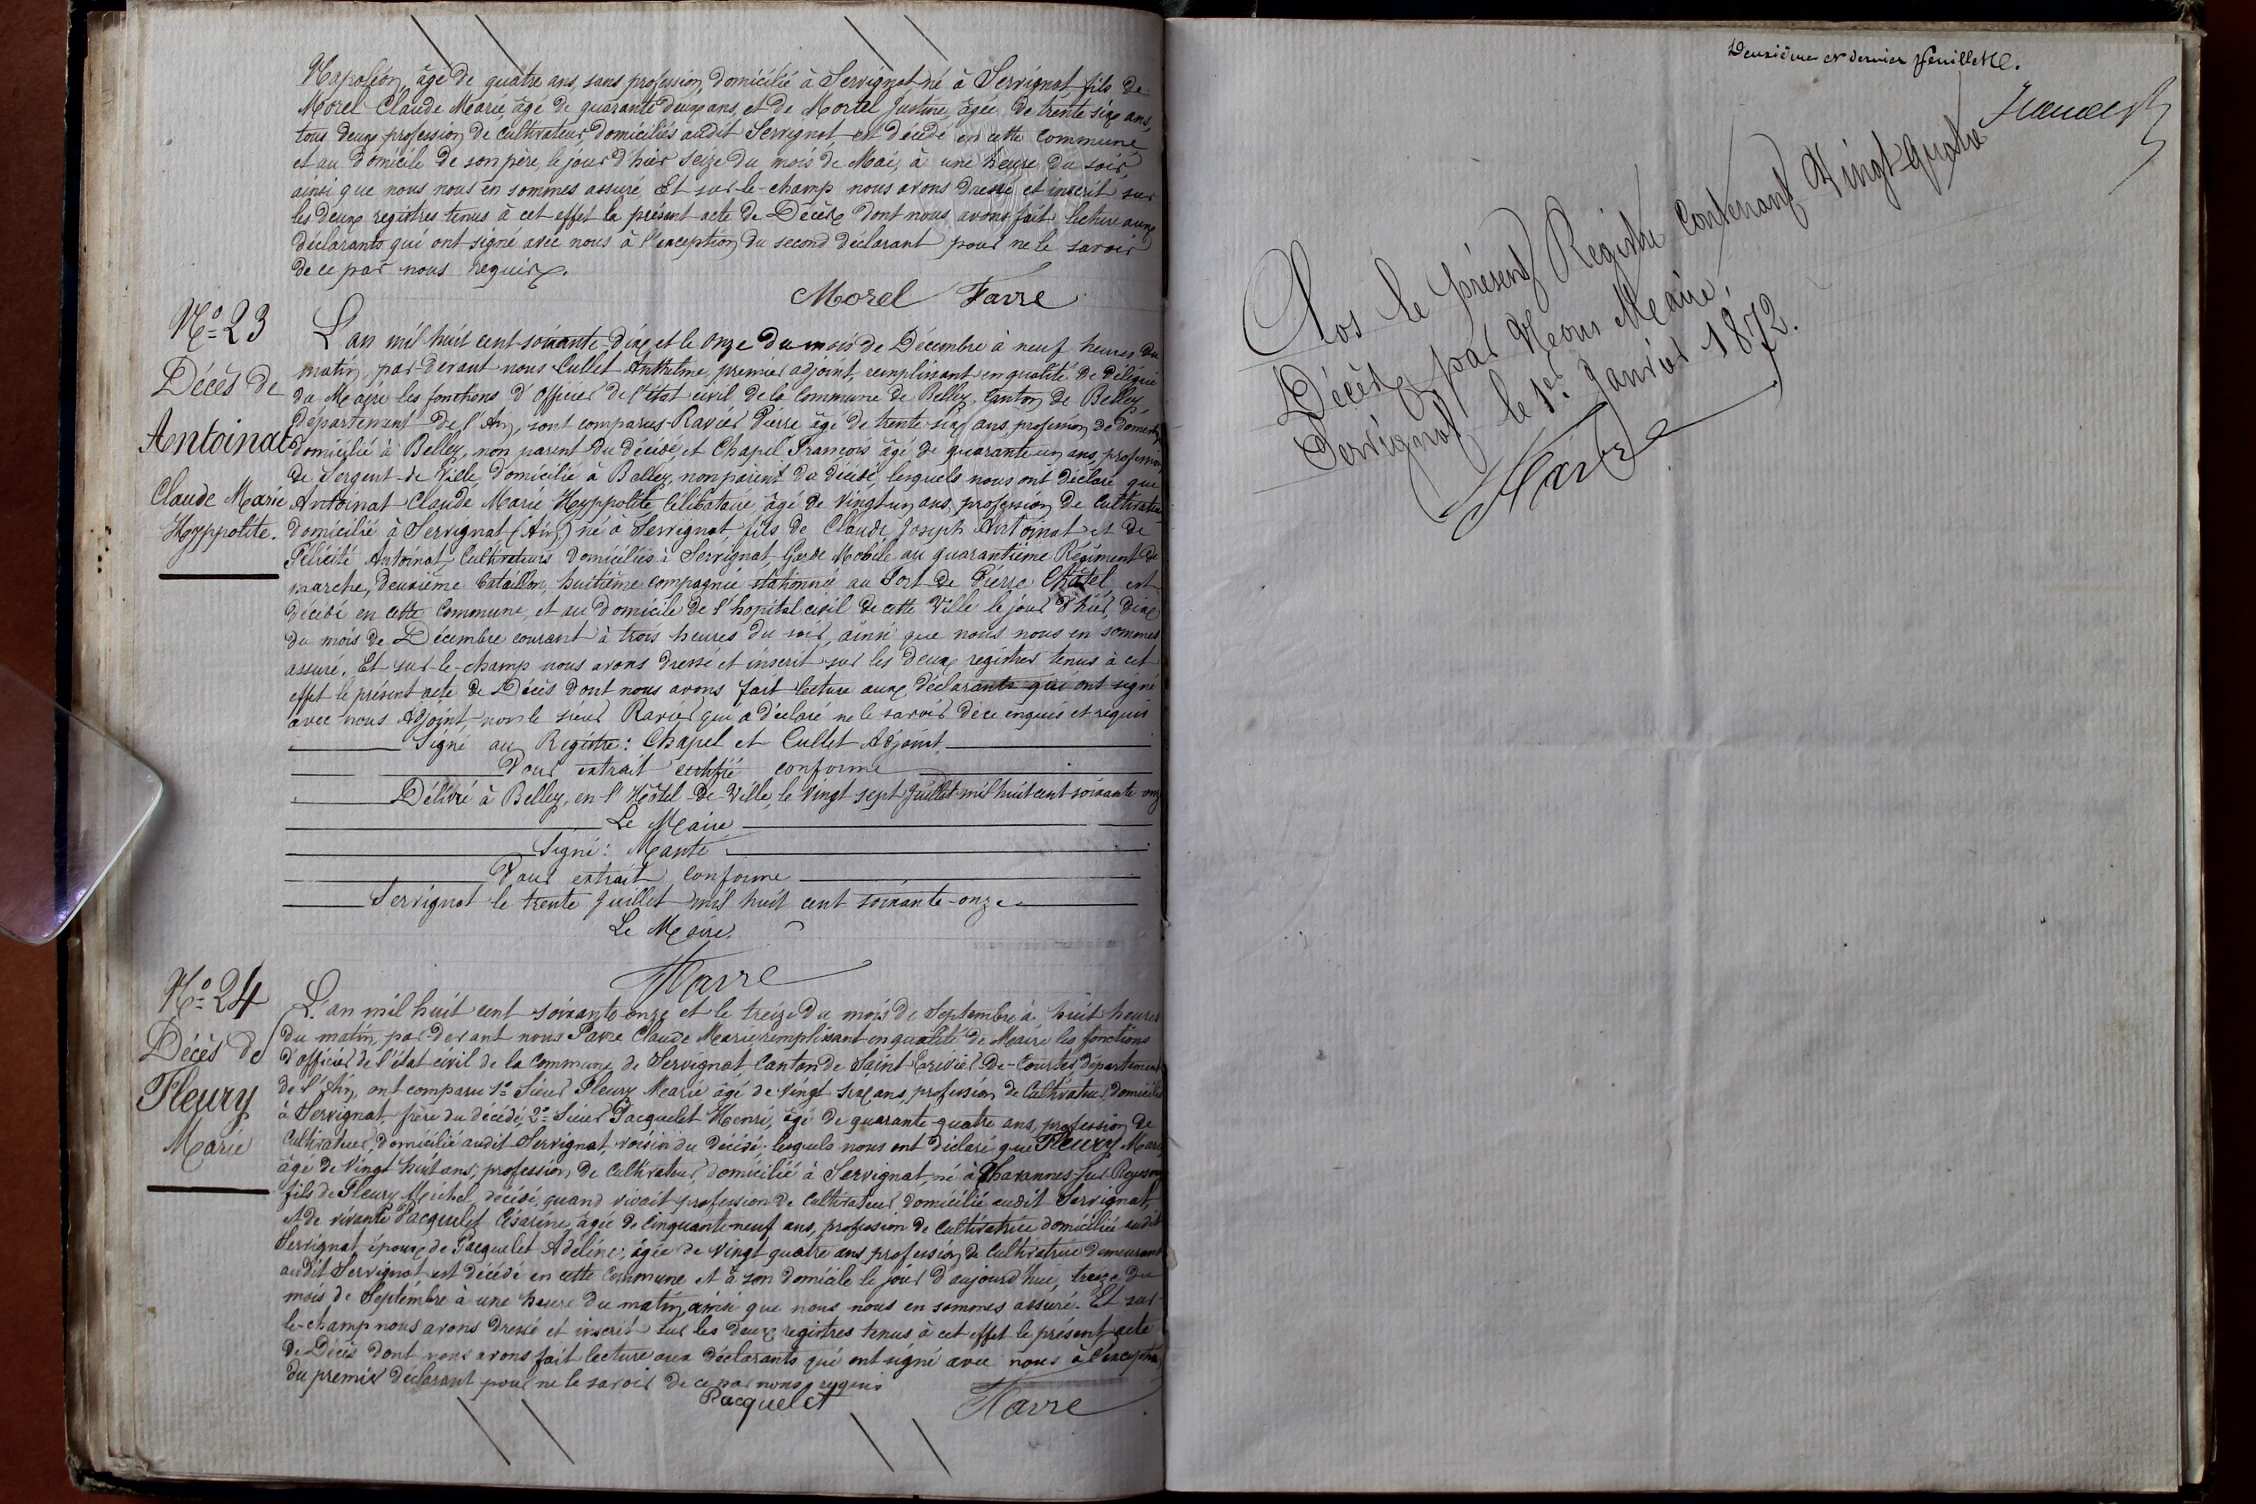 Napoléon, âgé de quatre ans, sans profession, domicilié à Servignat né à Servignat fils de
Morel Claude Marie, âgé de quarante deux ans, et de Morel Justine, âgée de trente six ans,
tous deux profession de cultivateurs, domiciliés audit Servignat est décédé en cette commune
et au domicile de son père, le jour d'hier seize du mois de Mai, à une heure du soir,
ainsi que nous nous en sommes assuré Et sur-le-champ nous avons dressé et inscrit sur
les deux registres tenus à cet effet le présent acte de Décès dont nous avons fait lecture aux
déclarants qui ont signé avec nous à l'exception du second déclarant pour ne le savoir
de ce par nous requis.
Morel Favre
N° 23
Décès de
Antoinat
Claude Marie
Hyppolite.
L'an mil huit cent soixante-dix et le onze du mois de Décembre à neuf heures du
matin, par-devant nous Cullet Anthelme, premier adjoint, remplissant en qualité de Délégué
du Maire les fonctions d'Officier de l'état civil de la Commune de Belley, Canton de Belley,
département de l'Ain, sont comparus Ravier Pierre âgé de trente-six ans, profession de domestique
domicilié à Belley, non parent du décédé et Chapel François âgé de quarante un ans, profession
de Sergent-de-Ville domicilié à Belley, non parent du décédé, lesquels nous ont déclaré que
Antoinat Claude Marie Hyppolite célibataire, âgé de vingt-un ans, profession de cultivateur
domicilié à Servignat (Ain) né à Servignat, fils de Claude Joseph Antoinat et de
Félicité Antoinat, Cultivateurs domiciliés à Servignat, Garde Mobile au quarantième Régiment de
marche, deuxième bataillon, huitième compagnie stationnée au Fort de Pierre Châtel, est
décédé en cette Commune, et au domicile de l'hopital civil de cette Ville le jour d'hier, dix
du mois de Décembre courant à trois heures du soir, ainsi que nous nous en sommes
assuré. Et sur-le-champ nous avons dressé et inscrit sur les deux registres tenus à cet
effet le présent acte de Décès dont nous avons fait lecture aux déclarants qui ont signé
avec nous Adjoint, non le sieur Ravier qui a déclaré ne le savoir de ce enquis et requis
Signé au Registre: Chapel et Cullet Adjoint
Pour extrait certifié conforme
Délivré à Belley, en l'Hôtel-de-Ville, le vingt sept Juillet mil huit cent soixante onze
Le Maire
Signé: Manté
Pour extrait conforme
Servignat le trente Juillet mil huit cent soixante-onze
Le Maire.
Favre
N° 24
Décès de
Fleury
Marie
L'an mil huit cent soixante-onze et le treize du mois de Septembre à huit heures
du matin, par devant nous Favre Claude Marie remplissant en qualité de Maire les fonctions
d'officier de l'état civil de la Commune de Servignat Canton de Saint-Trivier-De-Courtes département
de l'Ain, ont comparu 1° Sieur Fleury Marie âgé de vingt-six ans, profession de Cultivateur domicilié
à Servignat, frère du décédé, 2° Sieur Pacquelet Henri, âgé de quarante-quatre ans, profession de
Cultivateur, domicilié audit Servignat, voisin du décédé; lesquels nous ont déclaré que Fleury Marie
âgé de vingt huit ans, profession de cultivateur, domicilié à Servignat, né à Chavannes-sur-Reyssouze
fils de Fleury Michel, décédé, quand vivait profession de cultivateur domicilié audit Servignat,
et de vivante Pacquelet Césarine, âgée de cinquante-neuf ans, profession de Cultivatrice domiciliée audit
Servignat, époux de Pacquelet Adeline, âgée de vingt quatre ans, profession de cultivatrice demeurant
audit Servignat est décédé en cette Commune et à son domicile le jour d'aujourd'hui, treize du
mois de Septembre à une heure du matin, ainsi que nous nous en sommes assuré. Et sur-
le-champ nous avons dressé et inscrit sur les deux registres tenus à cet effet le présent acte
de Décès dont nous avons fait lecture aux déclarants qui ont signé avec nous à l'exception
du premier déclarant pour ne le savoir de ce par nous requis
Pacquelet Favre
Deuxième et dernier feuillet.
Clos le présent Registre contenant Vingt-quatre
Décès par Nous Maire,
Servignat le 1er Janvier 1872.
Favre